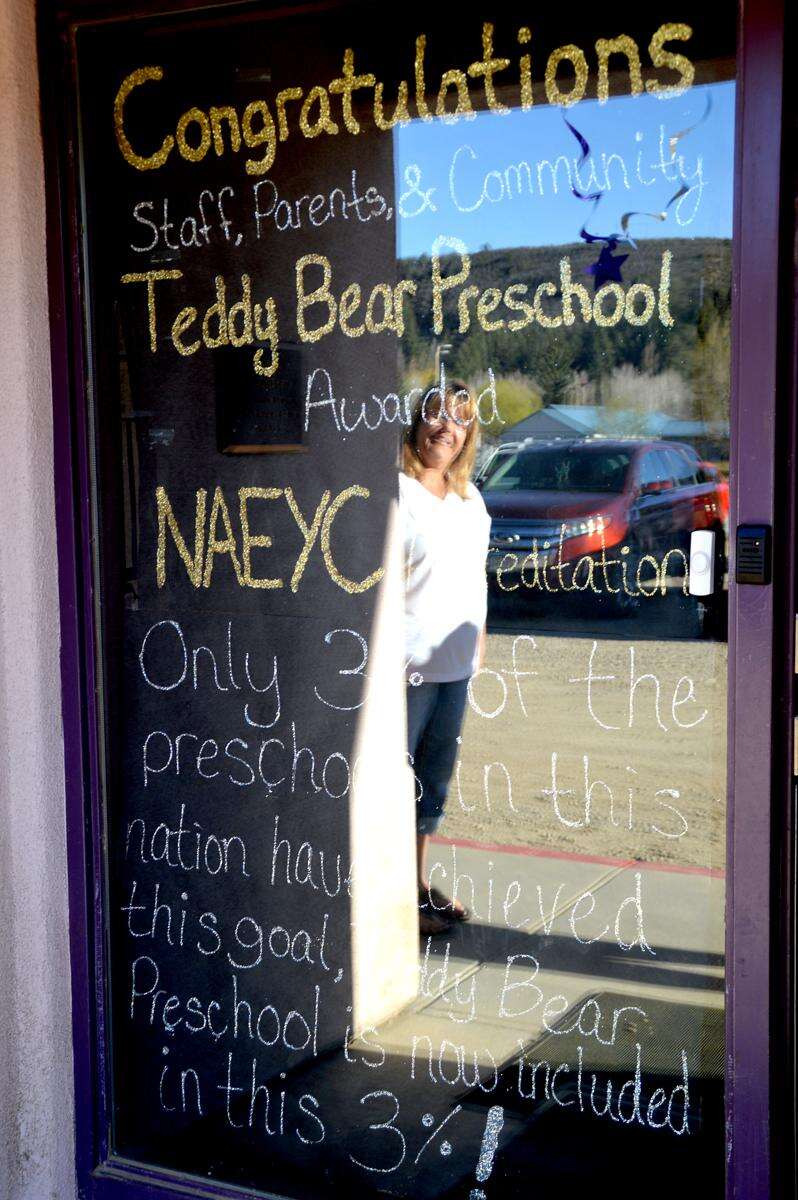 Congratulations
Staff, Parents, & Community
Teddy Bear Preschool
Awarded
NAEYC
Only 3% of the
in this
nation have achieved
this goal, Teddy Bear
Preschool is now included
in this 3%!